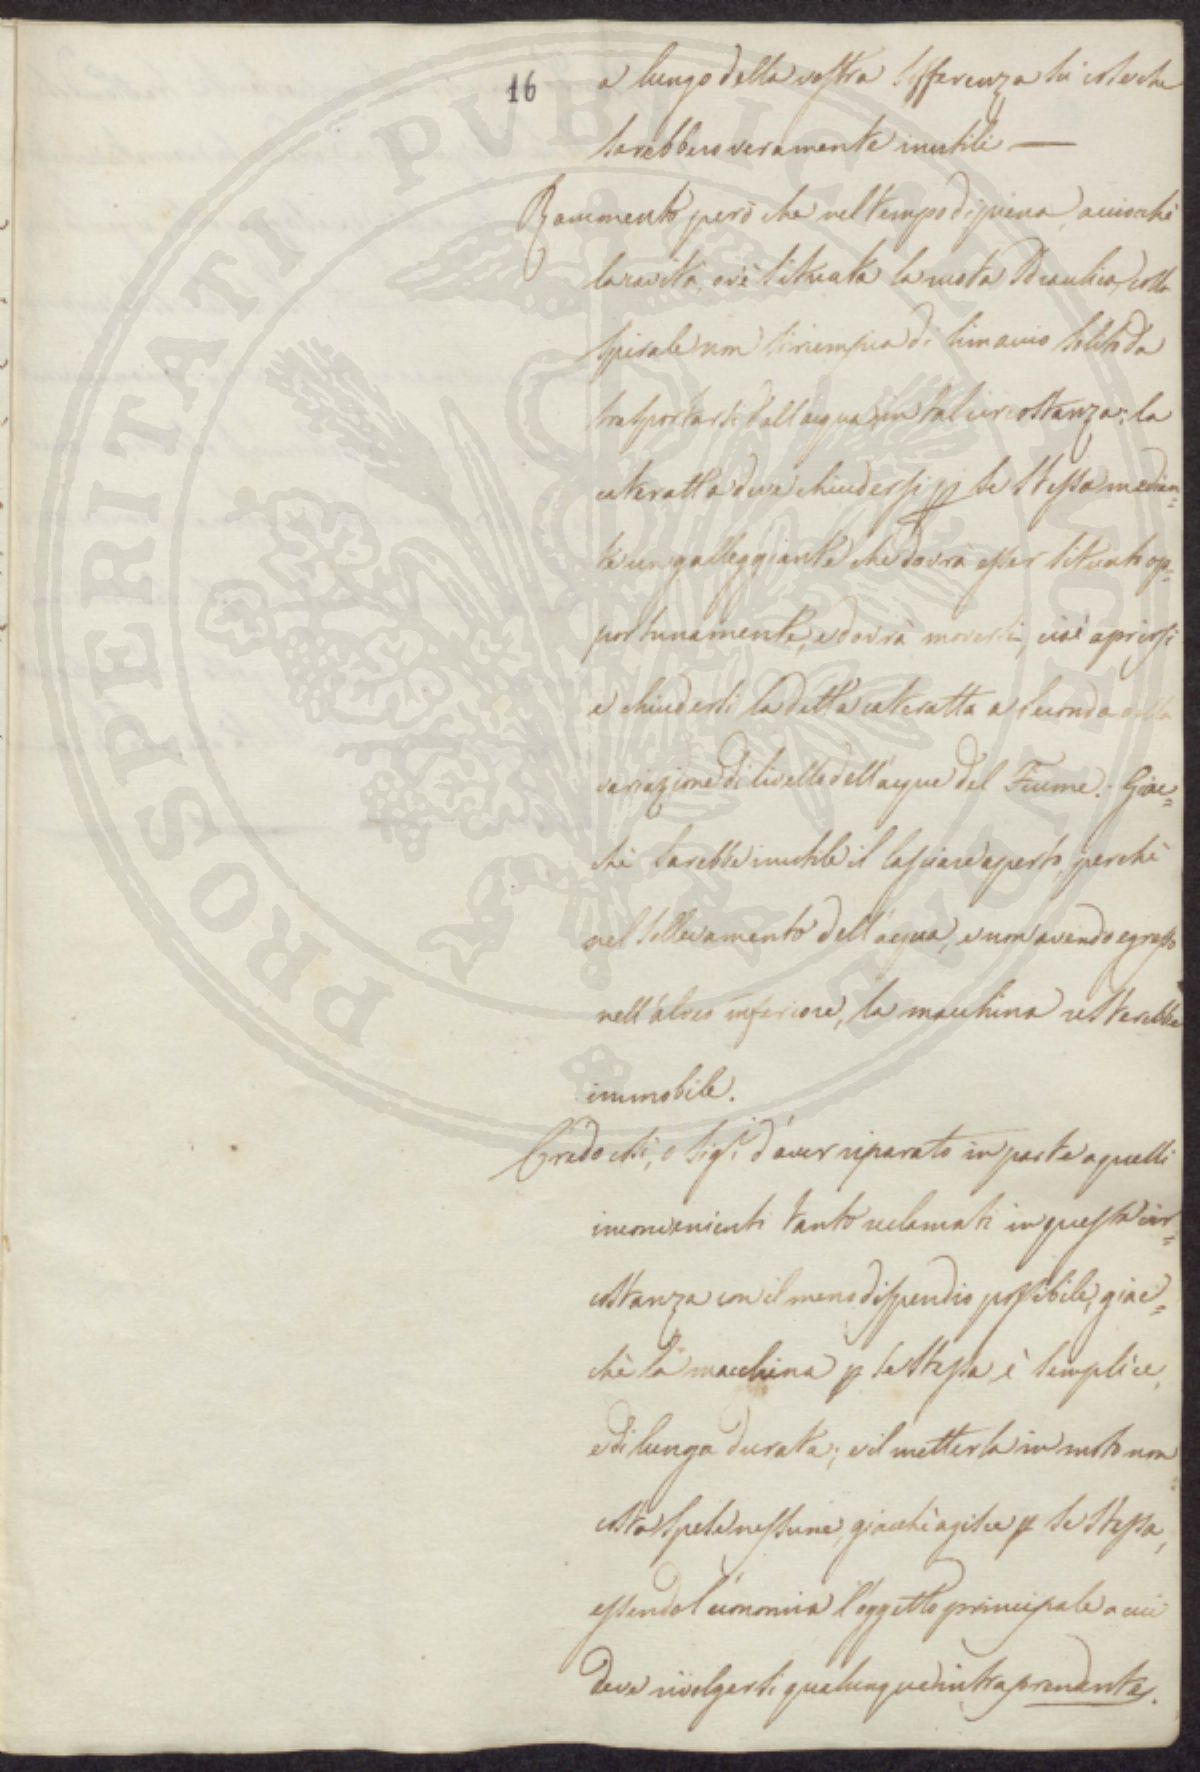 16
a lungo della vostra sofferenza su cose che
sarebbero veramente inutili —
Rammento però che nel tempo di piena, acciocchè
la cavità, ov'è situata la ruota Idraulica colla
spirale non si riempia di limaccio solito da
trasportarsi dall'acqua in tal circostanza; la
cateratta deve chiudersi p se stessa median=
te un galleggiante che dovrà esser situato op=
portunamente, e dovrà moversi, cioè aprirsi
e chiudersi la detta cateratta a seconda della
variazione di livello dell'acque del Fiume. Giac=
chè sarebbe inutile il lasciare aperto, perchè
nel sollevamento dell'acqua, e non avendo egresso
nell'alveo inferiore, la macchina resterebbe
immobile.
Credo chi, o Sigri d'aver riparato in parte a quelli
inconvenienti tanto reclamati in questa cir=
costanza con il meno dispendio possibile, giac=
chè la macchina p se stessa è semplice,
e di lunga durata; e il metterla in moto non
costa spese nessune, giacchè agisce p se stessa,
essendo l'economia l'oggetto principale a cui
deve rivolgersi qualunque intraprendente.
PROSPERITATI PUBLICAE AUGENDAE